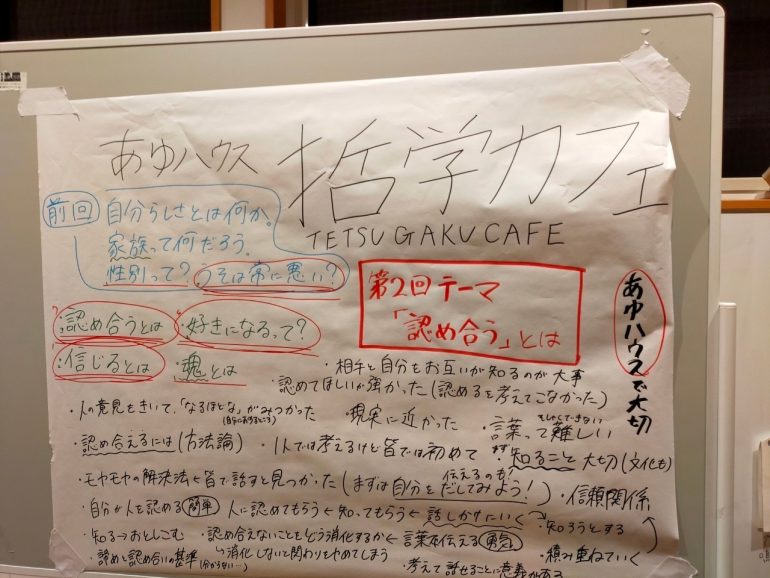 あゆハウス 哲学カフェ
TETSUGAKU CAFE
前回 自分らしさとは何か。
家族って何だろう。
性別って? うそは常に悪い?
・認め合うとは ・好きになるって?
・信じるとは ・魂とは
第2回テーマ
「認め合う」とは
あゆハウスで大切
・相手と自分をお互いが知るのが大事
・認めてほしいが強かった(認めるを考えてこなかった)
・人の意見をきいて、「なるほどな」がみつかった
・現実に近かった
・言葉って難しい
・認め合えるには(方法論)
・1人では考えるけど皆では初めて
まず
・知ること 大切(文化も)
・モヤモヤの解決法←皆で話すと見つかった(まずは自分をだしてみよう!)
伝えるのも
・信頼関係
・自分が人を認める 簡単 人に認めてもらう←知ってもらう←話しかけにいく
・知ろうとする
・知る→おとしこむ ・認め合えないことをどう消化するか←言葉を伝える 勇気
・積み重ねていく
・諦めと認め合いの基準
(分からない…)
↳消化しないと関わりをやめてしまう
・考えて話せることに意義がある